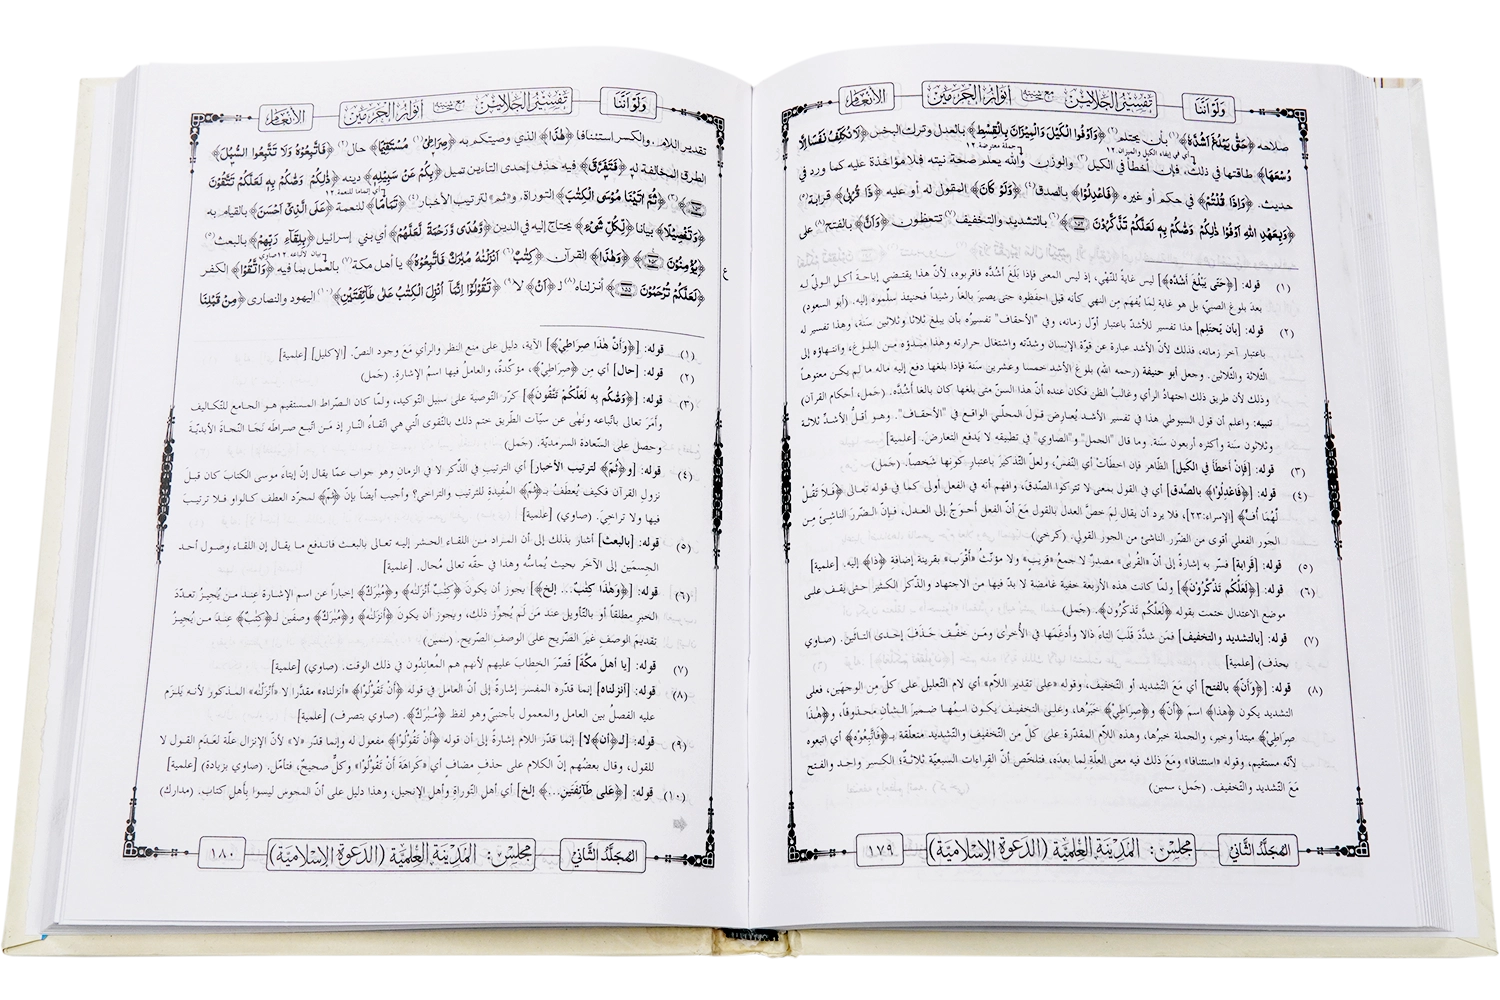 وَلَوْ اَنَّنَا
تَفْسِيْرُ الْجَلَالَيْن مع حاشية اَنْوَارُ الْحَرَمَيْن
الاَنْعَام
صلاحه ﴿حَتّٰى يَبْلُغَ اَشُدَّهٗ﴾(١) بأن يحتلم(٢) ﴿وَاَوْفُوا الْكَيْلَ وَالْمِيْزَانَ بِالْقِسْطِ﴾ بالعدل وترك البخس ﴿لَا نُكَلِّفُ نَفْسًا اِلَّا
وُسْعَهَا﴾ طاقتها في ذلك، فإن أخطأ في الكيل(٣) والوزن والله يعلم صحة نيته فلا مؤاخذة عليه كما ورد في
حديث. ﴿وَاِذَا قُلْتُمْ﴾ في حكم أو غيره ﴿فَاعْدِلُوْا﴾ بالصدق(٤) ﴿وَلَوْ كَانَ﴾ المقول له أو عليه ﴿ذَا قُرْبٰى﴾ قرابة(٥)
﴿وَبِعَهْدِ اللهِ اَوْفُوْا ذٰلِكُمْ وَصّٰىكُمْ بِهٖ لَعَلَّكُمْ تَذَكَّرُوْنَ﴾(٦) بالتشديد والتخفيف(٧) تتعظون ﴿وَاَنَّ﴾ بالفتح(٨) على
(١) قوله: [﴿حَتّٰى يَبْلُغَ اَشُدَّهٗ﴾] ليس غاية للنّهي، إذ ليس المعنى فإذا بلغ أشدّه فاقربوه، لأنّ هذا يقتضي إباحة أكل الولي له
بعد بلوغ الصبيّ، بل هو غاية لِمَا يُفهَم مِن النهي كأنه قيل احفظوه حتى يصير بالغاً رشيداً فحينئذ سلّموه إليه. (أبو السعود)
(٢) قوله: [بأن يحتلم] هذا تفسير للأشدّ باعتبار أوّل زمانه، وفي "الأحقاف" تفسيرُه بأن يبلغ ثلاثا وثلاثين سنة، وهذا تفسير له
باعتبار آخر زمانه، فذلك لأنّ الأشد عبارة عن قوّة الإنسان وشدّته واشتعال حرارته وهذا مبدؤه من البلوغ، وانتهاؤه إلى
الثلاثة والثلاثين. وجعل أبو حنيفة (رحمه الله) بلوغ الأشد خمسا وعشرين سنة فإذا بلغها دفع إليه ماله ما لم يكن معتوهاً
وذلك لأن طريق ذلك اجتهادُ الرأي وغالبُ الظن فكان عنده أنّ هذا السنّ متى بلغها كان بالغا أشُدَّه. (جمل، أحكام القرآن)
تنبيه: واعلم أن قول السيوطي هذا في تفسير الأشد يُعارض قولَ المحلّي الواقع في "الأحقاف". وهو أقلُّ الأشدّ ثلاثة
وثلاثون سنة وأكثره أربعون سنة. وما قال "الجمل" و"الصّاوي" في تطبيقه لا يَدفع التعارضَ. [علمية]
(٣) قوله: [فإنْ أخطأ في الكيل] الظّاهر فإن اخطأتْ أي النّفسُ، ولعلّ التّذكيرَ باعتبار كونها شخصاً. (جمل)
(٤) قوله: [﴿فَاعْدِلُوْا﴾ بالصّدق] أي في القول بمعنى لا تتركوا الصّدقَ، وافهم أنه في الفعل أولى كما في قوله تعالى ﴿فَلَا تَقُلْ
لَّهُمَا اُفٍّ﴾ [الإسراء:٢٣]، فلا يرد أن يقال لِمَ خصّ العدل بالقول مَعَ أنّ الفعل أحوجُ إلى العدل، فإنّ الضّررَ الناشئ مِنَ
الجَور الفعلي أقوى من الضّرر الناشئ من الجور القولي. (كرخي)
(٥) قوله: [قرابة] فسّر به إشارةً إلى أنّ "القُربى" مصدرٌ لا جمعُ «قريب» ولا مؤنّثُ «أقرَب» بقرينة إضافة ﴿ذا﴾ إليه. [علمية]
(٦) قوله: [﴿لَعَلَّكُمْ تَذَكَّرُوْنَ﴾] ولمّا كانت هذه الأربعة خفية غامضة لا بدّ فيها من الاجتهاد والذّكر الكثير حتى يقف على
موضع الاعتدال ختمت بقوله ﴿لَعَلَّكُمْ تَذَكَّرُوْنَ﴾. (جمل)
(٧) قوله: [بالتشديد والتخفيف] فمَن شدّدَ قلَبَ التاء ذالا وأدغَمَها في الأُخرى ومَن خفّف حَذَفَ إحدى التائَين. (صاوي
بحذف) [علمية]
(٨) قوله: [﴿وَاَنّ﴾ بالفتح] أي مَعَ التّشديد أو التّخفيف، وقوله «على تقدير اللّام» أي لام التّعليل على كلّ مِن الوجهَين، فعلى
التشديد يكون ﴿هذا﴾ اسمَ ﴿أنّ﴾ و﴿صِرَاطِيْ﴾ خبَرُها، وعلى التخفيف يكون اسمُها ضميرَ الشأن محذوفاً، و﴿هٰذَا
صِرَاطِيْ﴾ مبتدأ وخبر، والجملة خبرُها، وهذه اللّام المقدّرة على كلّ من التّخفيف والتّشديد متعلّقة بـ﴿فَاتَّبِعُوْهُ﴾ أي اتبعوه
لأنّه مستقيم، وقوله «استئنافا» ومَعَ ذلك فيه معنى العلّة لِما بعدَه، فتلخّص أنّ القِراءات السبعيّة ثلاثةٌ؛ الكسر واحد والفتح
مَعَ التّشديد والتّخفيف. (جمل، سمين)
المجلد الثاني
مجلس: المَدِيْنَة العِلْميّة (الدعوة الإسلاميّة)
١٧٩
وَلَوْ اَنَّنَا
تَفْسِيْرُ الْجَلَالَيْن مع حاشية اَنْوَارُ الْحَرَمَيْن
الاَنْعَام
تقدير اللام، والكسر استئنافا ﴿هٰذَا﴾ الذي وصيتكم به ﴿صِرَاطِيْ(١) مُسْتَقِيْمًا﴾ حال(٢) ﴿فَاتَّبِعُوْهُ وَلَا تَتَّبِعُوا السُّبُلَ﴾
الطرق المخالفة له ﴿فَتَفَرَّقَ﴾ فيه حذف إحدى التاءين تميل ﴿بِكُمْ عَنْ سَبِيْلِهٖ﴾ دينه ﴿ذٰلِكُمْ وَصّٰىكُمْ بِهٖ لَعَلَّكُمْ تَتَّقُوْنَ
﴾(٣) ﴿ثُمَّ اٰتَيْنَا مُوْسَى الْكِتٰبَ﴾ التوراة، و«ثم» لترتيب الأخبار(٤) ﴿تَمَامًا﴾ للنعمة ﴿عَلَى الَّذِيْ اَحْسَنَ﴾ بالقيام به
﴿وَتَفْصِيْلًا﴾ بيانا ﴿لِّكُلِّ شَيْءٍ﴾ يحتاج إليه في الدين ﴿وَهُدًى وَّرَحْمَةً لَّعَلَّهُمْ﴾ أي بني إسرائيل ﴿بِلِقَآءِ رَبِّهِمْ﴾ بالبعث(٥)
﴿يُؤْمِنُوْنَ﴾ ﴿وَهٰذَا﴾ القرآن ﴿كِتٰبٌ(٦) اَنْزَلْنٰهُ مُبٰرَكٌ فَاتَّبِعُوْهُ﴾ يا أهل مكة(٧) بالعمل بما فيه ﴿وَاتَّقُوْا﴾ الكفر
﴿لَعَلَّكُمْ تُرْحَمُوْنَ ١٥٥﴾ أنزلناه(٨) لـ ﴿اَنْ﴾ لا(٩) ﴿تَقُوْلُوْٓا اِنَّمَآ اُنْزِلَ الْكِتٰبُ عَلٰى طَآئِفَتَيْنِ﴾(١٠) اليهود والنصارى ﴿مِنْ قَبْلِنَا
(١) قوله: [﴿وَاَنَّ هٰذَا صِرَاطِيْ﴾] الآية، دليل على منع النظر والرأي مَعَ وجود النصّ. [الإكليل] [علمية]
(٢) قوله: [حال] أي مِن ﴿صِرَاطِيْ﴾، مؤكّدةٌ، والعاملُ فيها اسمُ الإشارة. (جَمل)
(٣) قوله: [﴿وَصّٰىكُمْ بِهٖ لَعَلَّكُمْ تَتَّقُوْنَ﴾] كرّر التّوصية على سبيل التّوكيد، ولمّا كان الصّراط المستقيم هو الجامع للتّكاليف
وأمَرَ تعالى باتّباعه ونَهى عن سيّات الطّريق ختم ذلك بالتّقوى الّتي هي اتّقاءُ النّار إذ مَن اتّبع صراطَه نَجَا النّجاةَ الأبديّةَ
وحصل على السّعادة السرمديّة. (جمل)
(٤) قوله: [و﴿ثُمّ﴾ لترتيب الأخبار] أي الترتيب في الذّكر لا في الزمان وهو جواب عمّا يقال إنّ إيتاء موسى الكتابَ كان قبل
نزول القرآن فكيف يُعطَفُ بـ﴿ثُمَّ﴾ المُفيدةِ للترتيب والتراخي؟ وأُجيب أيضاً بأنّ ﴿ثُمّ﴾ لمجرّد العطف كالواو فلا ترتيبَ
فيها ولا تراخيَ. (صاوي) [علمية]
(٥) قوله: [بالبعث] أشار بذلك إلى أن المراد من اللقاء الحشر إليه تعالى بالبعث فاندفع ما يقال إن اللقاء وصول أحد
الجِسمَين إلى الآخر بحيث يُماسُّه وهذا في حقّه تعالى مُحال. [علمية]
(٦) قوله: [﴿وَهٰذَا كِتٰبٌ﴾... إلخ] يجوز أن يكون ﴿كِتٰبٌ اَنْزَلْنٰهُ﴾ و﴿مُبٰرَكٌ﴾ إخباراً عن اسم الإشارة عند مَن يُجيزُ تعدّدَ
الخبرِ مطلقاً أو بالتّأويل عند مَن لَم يُجوّز ذلك، ويجوز أن يكون ﴿اَنْزَلْنٰهُ﴾ و﴿مُبٰرَكٌ﴾ وصفَين لـ﴿كِتٰبٌ﴾ عند مَن يُجيزُ
تقديمَ الوصفِ غيرَ الصّريح على الوصفِ الصّريح. (سمين)
(٧) قوله: [يا أهلَ مكّة] قَصَرَ الخطابَ عليهم لأنهم هم المُعاندُون في ذلك الوقت. (صاوي) [علمية]
(٨) قوله: [أنزلناه] إنما قدّره المفسر إشارةً إلى أنّ العامل في قوله ﴿اَنْ تَقُوْلُوْا﴾ «أنزلناه» مقدّرا لا «أنْزَلْنٰه» المذكورُ لأنه يَلزم
عليه الفصلُ بين العامل والمعمول بأجنبيّ وهو لفظ ﴿مُبٰرَكٌ﴾. (صاوي بتصرف) [علمية]
(٩) قوله: [لـ﴿اَن﴾ لا] إنما قدّر اللام إشارةً إلى أن قوله ﴿اَنْ تَقُوْلُوْا﴾ مفعول له وإنما قدّر «لا» لأنّ الإنزال علّة لعَدَم القول لا
للقول، وقال بعضُهم إنّ الكلام على حذفِ مضافٍ أي «كَراهةَ أنْ تَقُوْلُوْا» وكلٌّ صحيحٌ، فتأمّل. (صاوي بزيادة) [علمية]
(١٠) قوله: [﴿عَلٰى طَآئِفَتَيْنِ...﴾ إلخ] أي أهل التّوراة وأهل الإنجيل، وهذا دليل على أنّ المجوس ليسوا بأهل كتاب. (مدارك)
المجلد الثاني
مجلس: المَدِيْنَة العِلْميّة (الدعوة الإسلاميّة)
١٨٠